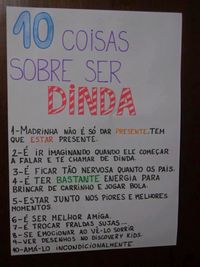 10 COISAS
SOBRE SER
DINDA
1-MADRINHA NÃO É SÓ DAR PRESENTE.TEM
QUE ESTAR PRESENTE.
2-É IR IMAGINANDO QUANDO ELE COMEÇAR
A FALAR E TE CHAMAR DE DINDA.
3-É FICAR TÃO NERVOSA QUANTO OS PAIS.
4-É TER BASTANTE ENERGIA PARA
BRINCAR DE CARRINHO E JOGAR BOLA.
5-ESTAR JUNTO NOS PIORES E MELHORES
MOMENTOS
6-É SER MELHOR AMIGA.
7-É TROCAR FRALDAS SUJAS...
8-SE EMOCIONAR AO VÊ-LO SORRIR
9-VER DESENHOS NO DISCOVERY KIDS.
10-AMÁ-LO INCONDICIONALMENTE